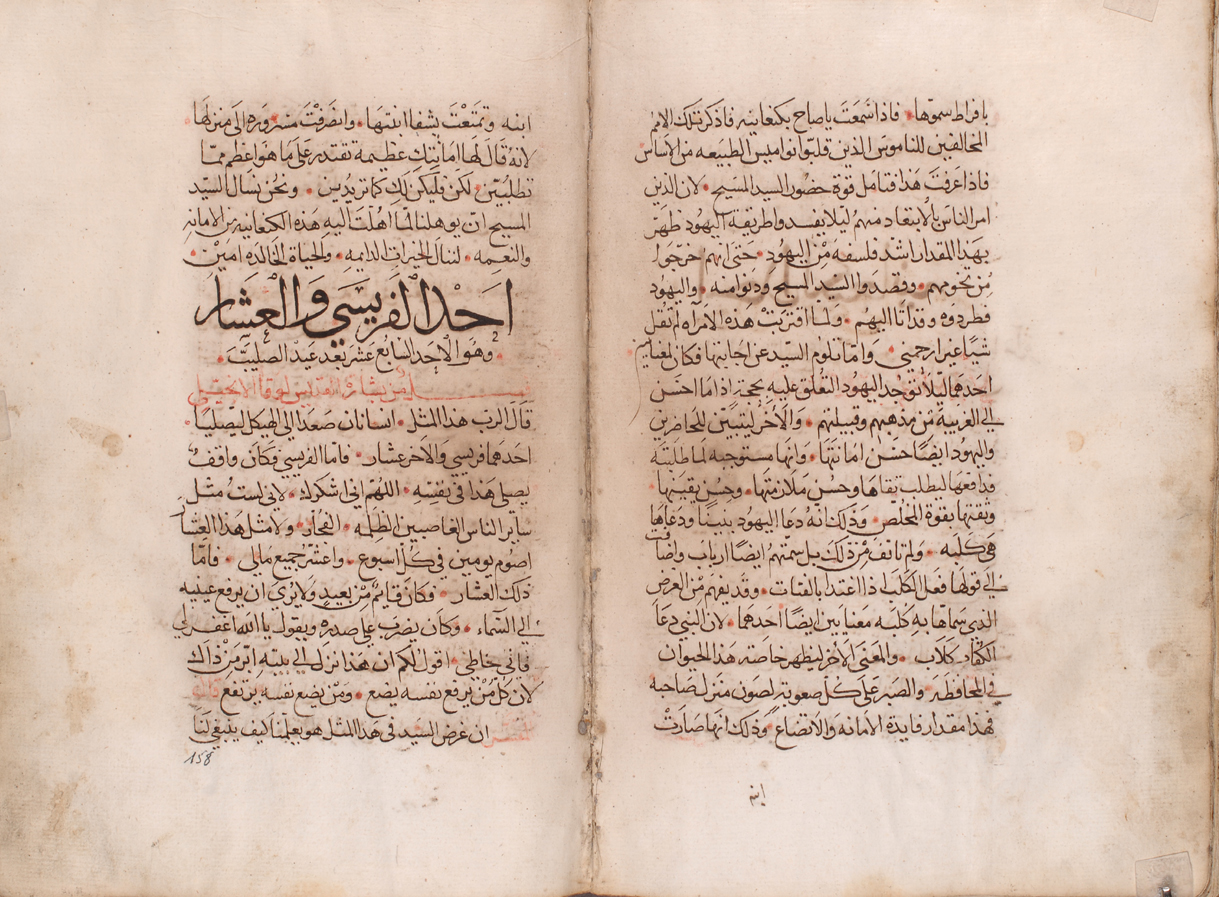 بافراط سموها فاذا سمعت ياصاح بكنعانيه فاذكر تلك الامم
المخالفين للناموس الذين قلبوا نواميس الطبيعه من الاساس
فاذا عرفت هذا فتامل قوة حضور السيد المسيح لان الذين
امر الناس بالابتعاد منهم ليلا يفسدوا طريقة اليهود ظهر
بهذا المقدار اشد فلسفه من اليهود حتى انهم خرجوا
من تخومهم وقصدوا السيد المسيح ودنوا منه واليهود
فطردوه وقد اتا اليهم ولما اقتربت هذه الامرآه لم تقل
شيًا غير ارحمني واما تلوم السيد عن اجابتها فكان لمعنايين
احدهما ليلا توجد اليهود التعلق عليه بحجة اذ اما احسن
الى الغريبة من مذهبهم وقبيلتهم والاخر ليتبين للحاضرين
واليهود ايضًا حسن امانتها وانها مستوجبه لما طلبته
فدافعها ليطلب تقاها وحسن ملازمتها وحسن يقينها
وثقتها بقوة المخلص وذلك انه دعا اليهود بنينا ودعاها
هي كلبه ولم تانف من ذلك بل سمتهم ايضًا ارباب واضافت
الى قولها فعل الكلب اذا اغتدا بالفتات وقد يفهم من الغرض
الذي سماها به كلبه معنايين ايضًا احدهما لان النبي دعا
الكفار كلاب والمعنى الاخر ليظهر خاصة هذا الحيوان
في المحافظه والصبر على كل صعوبة لصون منزل صاحبه
فهذا مقدار فايدة الامانه والاتضاع وذلك انها صارت
ابنه
ابنه وتمتعت بشفا ابنتها وانصرفت مسروره الى منزلها
لانه قال لها امانتك عظيمة تقتدر على ما هو اعظم مما
تطلبين لكن فليكن لك كما تريدين ونحن نسال السيد
المسيح ان يوهلنا لما اهلت اليه هذه الكنعانيه من الامانه
والنعمه لننال الخيرات الدايمه والحياة الخالده امين
احد الفريسي والعشار
وهو الاحد السابع عشر بعد عيد الصليب
من بشارة القديس لوقا الانجيلي
قال الرب هذا المثل انسانان صعدا الى الهيكل ليصليا
احدهما فريسي والاخر عشار فاما الفريسي فكان واقف
يصلي هذا في نفسه اللهم اني اشكرك لاني لست مثل
ساير الناس الغاصبين الظلمه الفجار ولا مثل هذا العشار
اصوم يومين في كل اسبوع واعشر جميع مالي فاما
ذلك العشار فكان قايم من بعيد ولا يرى ان يرفع عينيه
الى السماء وكان يضرب على صدره ويقول يا الله اغفر لي
فاني خاطي اقول لكم ان هذا نزل الى بيته ابر من ذاك
لان كل من يرفع نفسه يضع ومن يضع نفسه يرتفع
ان غرض السيد في هذا المثل هو يعلمنا كيف ينبغي لنا
158